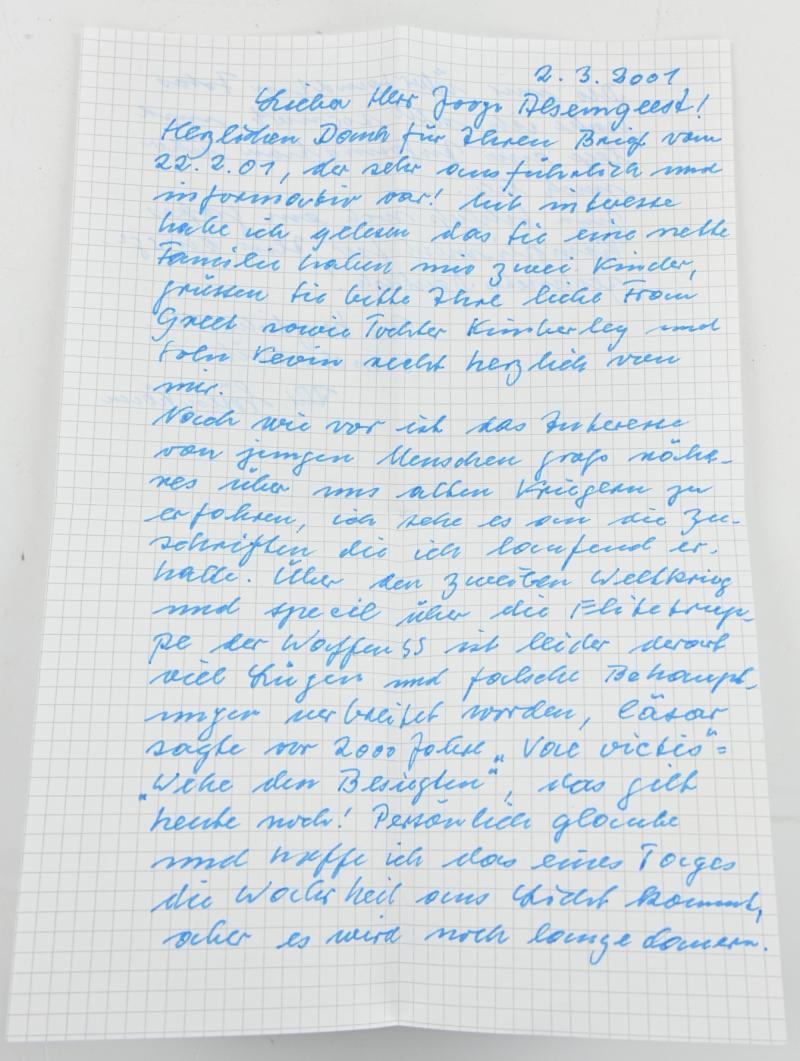 2.3.2001
Lieber Herr Joop Alsemgeest!
Herzlichen Dank für Ihren Brief vom
22.2.01, der sehr ausführlich und
informativ war! Mit interesse
habe ich gelesen das Sie eine nette
Familie haben mit zwei Kinder,
grüssen Sie bitte Ihre liebe Frau
Greet sowie Tochter Kimberley und
Sohn Kevin recht herzlich von
mir.
Nach wie vor ist das Interesse
von jungen Menschen groß nähe-
res über uns alten Kriegern zu
erfahren, ich sehe es an die Zu-
schriften die ich laufend er-
halte. Über den zweiten Weltkrieg
und speciel über die Elitetrup-
pe der Waffen SS ist leider derart
viel Lügen und falsche Behaupt-
ungen verbreitet worden, Cäsar
sagte vor 2000 Jahre „Vae victis“=
„Wehe den Besiegten“, das gilt
heute noch! Persönlich glaube
und hoffe ich das eines Tages
die Wahrheit ans Licht kommt,
aber es wird noch lange dauern.